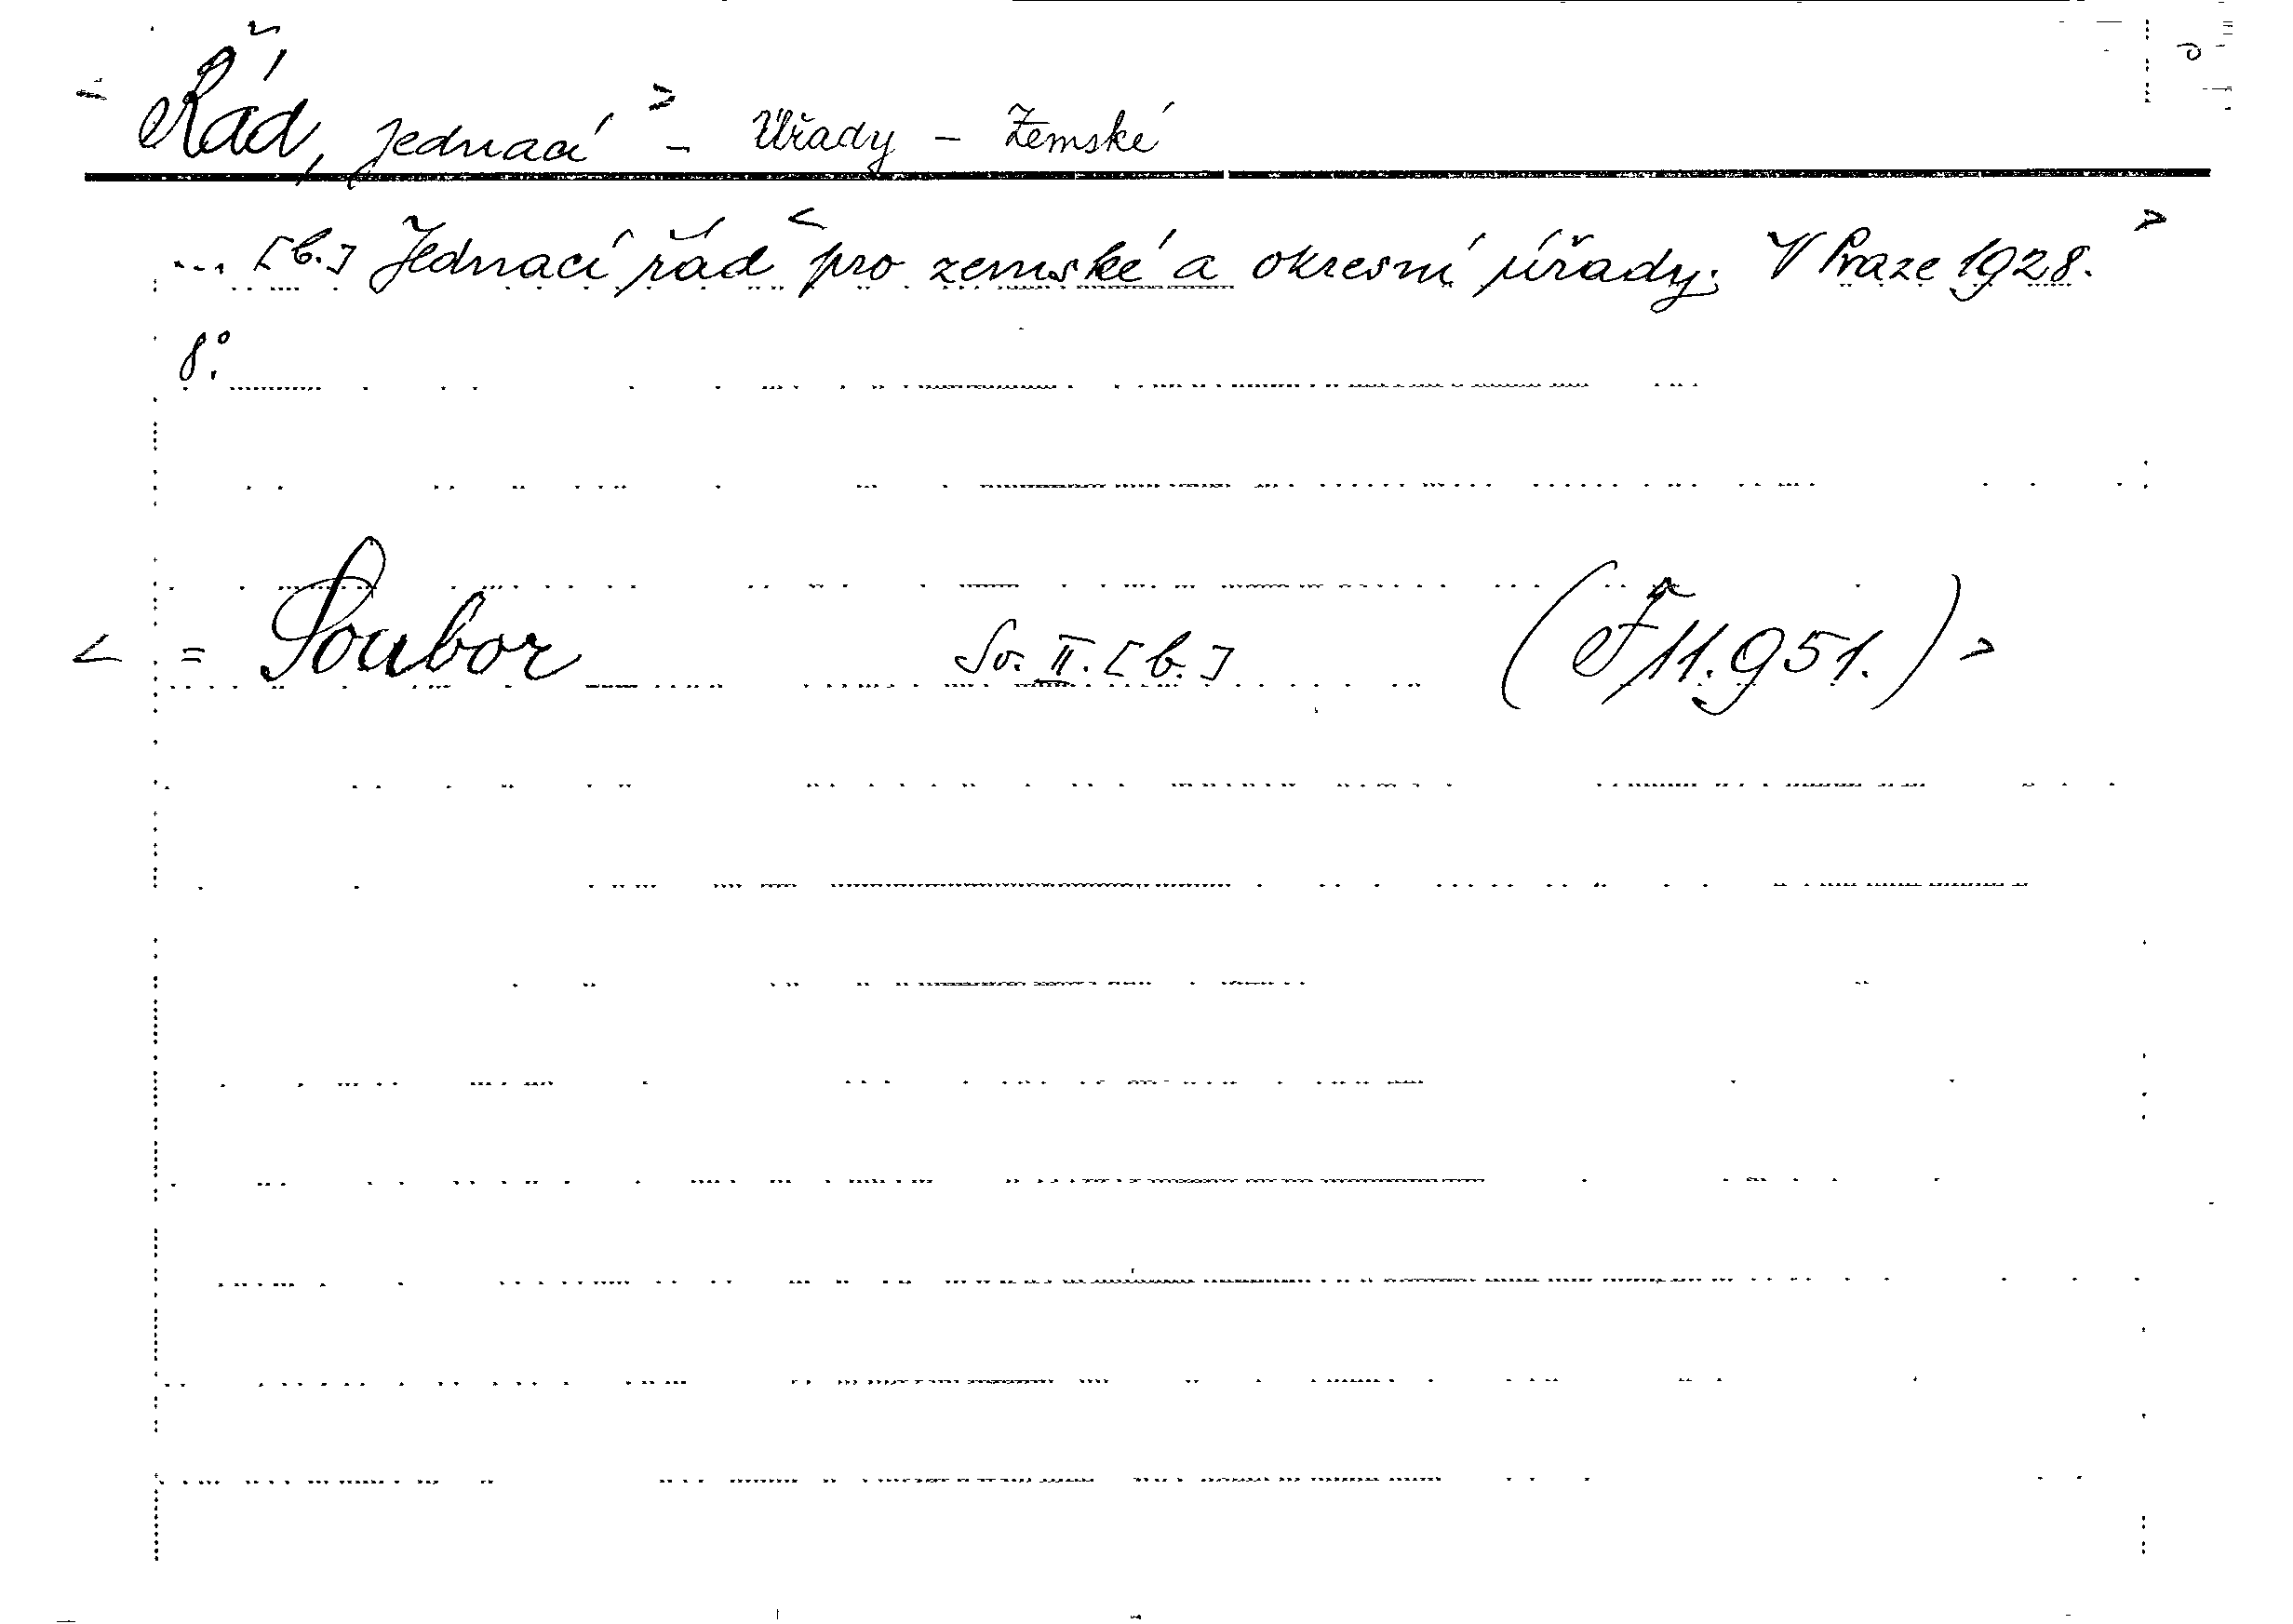 < Řád, jednací > - Úřady - Zemské
... [b.] Jednací řád < pro zemské a okresní úřady. V Praze 1928. >
8°.
< = Soubor Sv. II. [b.] (F 11.951.) >